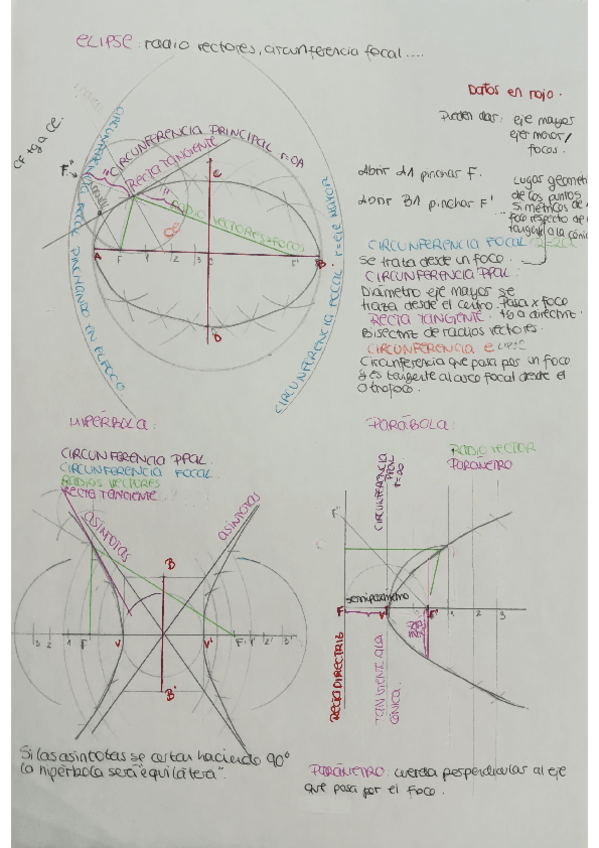 ELIPSE: radio vectores, circunferencia focal....
Datos en rojo.
Pueden dar: eje mayor
eje menor/
focos.
CF tg a ce.
CIRCUNFERENCIA PRINCIPAL r=OA
RECTA TANGENTE
RADIO VECTORES
CIRCUNFERENCIA FOCAL PINCHANDO EN EL FOCO.
CIRCUNFERENCIA FOCAL r=EJE MAYOR
F"
C
A
F
1
2
3
F'
B
D
Abrir A1 pinchar F.
Abrir B1 pinchar F'
Lugar geomet
de los puntos
simétricos de
foco respecto de
tangente a la cónic
CIRCUNFERENCIA FOCAL
se traza desde un foco.
CIRCUNFERENCIA PPAL:
Diámetro eje mayor se
traza desde el centro. Pasa x foco
RECTA TANGENTE. tg a directriz.
Bisectriz de radios vectores.
CIRCUNFERENCIA e LIPSE
Circunferencia que pasa por un foco
y es tangente al arco focal desde el
otro foco.
HIPÉRBOLA:
CIRCUNFERENCIA PPAL.
CIRCUNFERENCIA FOCAL.
RADIOS VECTORES
RECTA TANGENTE
asintotas
asintotas
B
3 2 1 F V V' F' 1' 2' 3'
B'
Si las asintotas se cortan haciendo 90º
la hipérbola será "equilátera".
PARÁBOLA:
RADIO VECTOR
PARAMETRO
CIRCUNFERENCIA
PPAL
r=∞
F"
semiparametro
F V F' 1 2 3
RECTA DIRECTRIZ
TANGENTE A LA
CÓNICA.
PARÁMETRO: cuerda perpendicular al eje
que pasa por el foco.